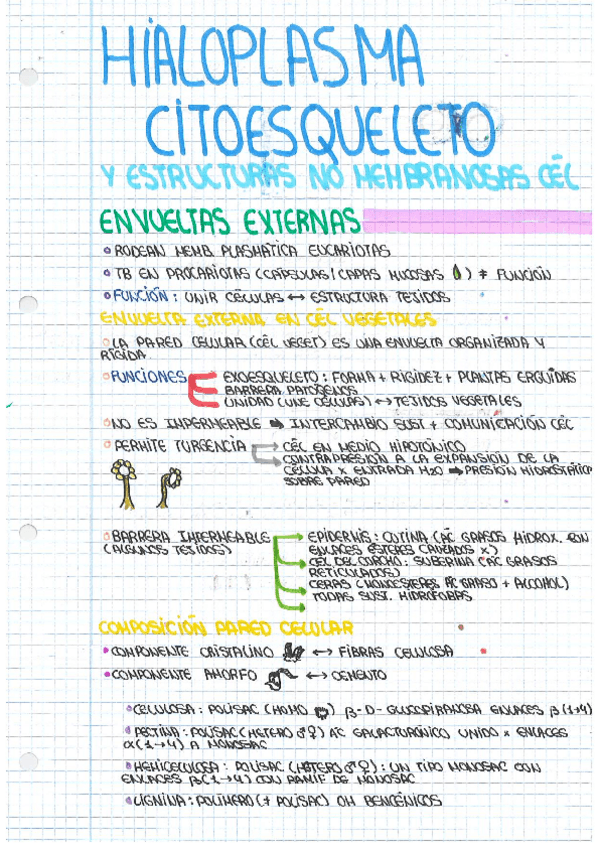 HIALOPLASMA
CITOESQUELETO
Y ESTRUCTURAS NO MEMBRANOSAS CÉL
ENVUELTAS EXTERNAS
RODEAN MEMB. PLASMÁTICA EUCARIOTAS
TB EN PROCARIOTAS (CÁPSULAS/CAPAS MUCOSAS ) ≠ FUNCIÓN
FUNCIÓN: UNIR CÉLULAS ↔ ESTRUCTURA TEJIDOS
ENVUELTA EXTERNA EN CÉL VEGETALES
LA PARED CELULAR (CÉL VEGET) ES UNA ENVUELTA ORGANIZADA Y
RÍGIDA
FUNCIONES EXOESQUELETO: FORMA + RIGIDEZ + PLANTAS ERGUIDAS
BARRERA PATÓGENOS
UNIDAD (UNE CÉLULAS) ↔ TEJIDOS VEGETALES
NO ES IMPERMEABLE ⇒ INTERCAMBIO SUST + COMUNICACIÓN CÉL
PERMITE TURGENCIA → CÉL EN MEDIO HIPOTÓNICO
CONTRAPRESIÓN A LA EXPANSIÓN DE LA
CÉLULA X ENTRADA H2O ⇒ PRESIÓN HIDROSTÁTICA
SOBRE PARED
BARRERA IMPERMEABLE → EPIDERMIS: CUTINA (ÁC GRASOS HIDROX. CON
(ALGUNOS TEJIDOS) ENLACES ÉSTERES CRUZADOS X)
CÉL DEL CORCHO: SUBERINA (ÁC GRASOS
RETICULADOS)
CERAS (MONOÉSTERES ÁC GRASO + ALCOHOL)
TODAS SUST. HIDRÓFOBAS
COMPOSICIÓN PARED CELULAR
COMPONENTE CRISTALINO ↔ FIBRAS CELULOSA
COMPONENTE AMORFO ↔ CEMENTO
CELULOSA: POLISAC (HOMO ) β-D-GLUCOPIRANOSA ENLACES β(1→4)
PECTINA: POLISAC (HETERO ♂♀) ÁC GALACTURÓNICO UNIDO X ENLACES
α(1→4) A MONOSAC
HEMICELULOSA: POLISAC (HETERO ♂♀): UN TIPO MONOSAC CON
ENLACES β(1→4) CON RAMIF DE MONOSAC
LIGNINA: POLÍMERO (≠ POLISAC) OH BENCÉNICOS